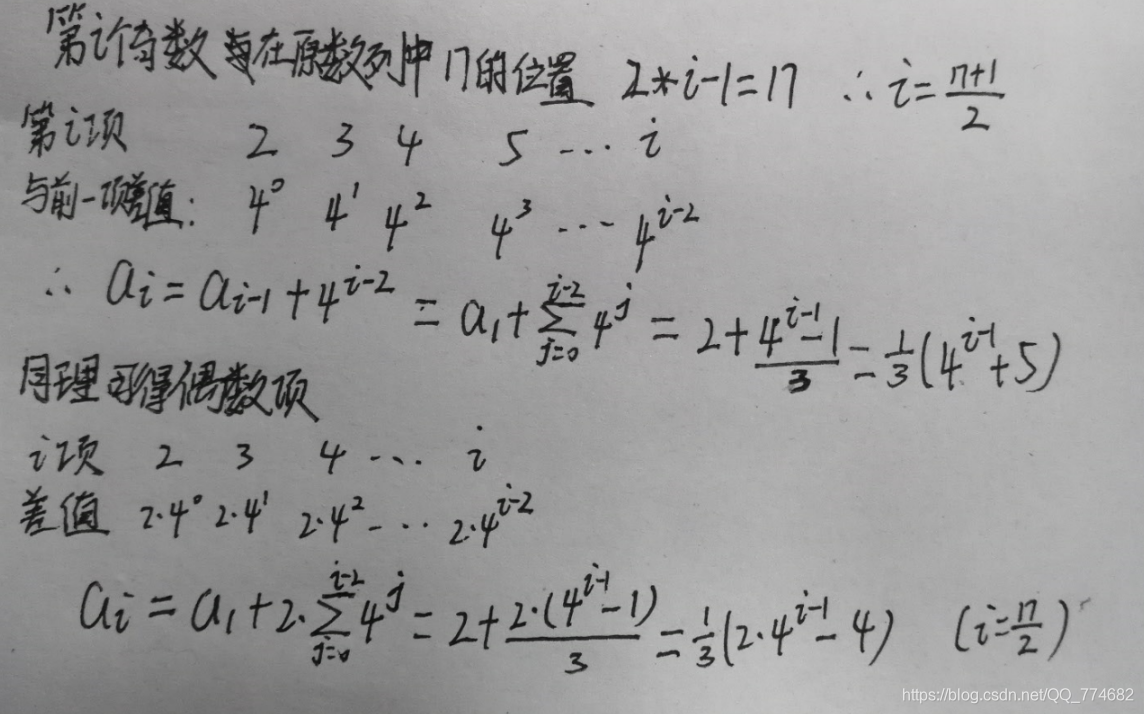 第i个奇数与在原数列中n的位置 2*i-1=n ∴ i=\frac{n+1}{2}
第i项 2 3 4 5 … i
与前一项差值: 4^0 4^1 4^2 4^3 … 4^{i-2}
∴ a_i = a_{i-1} + 4^{i-2} = a_1 + \sum_{j=0}^{i-2} 4^j = 2 + \frac{4^{i-1}-1}{3} = \frac{1}{3}(4^{i-1}+5)
同理可得偶数项
i项 2 3 4 … i
差值 2·4^0 2·4^1 2·4^2 … 2·4^{i-2}
a_i = a_1 + 2·\sum_{j=0}^{i-2} 4^j = 2 + \frac{2·(4^{i-1}-1)}{3} = \frac{1}{3}(2·4^{i-1}-4) (i=\frac{n}{2})
https://blog.csdn.net/QQ_774682